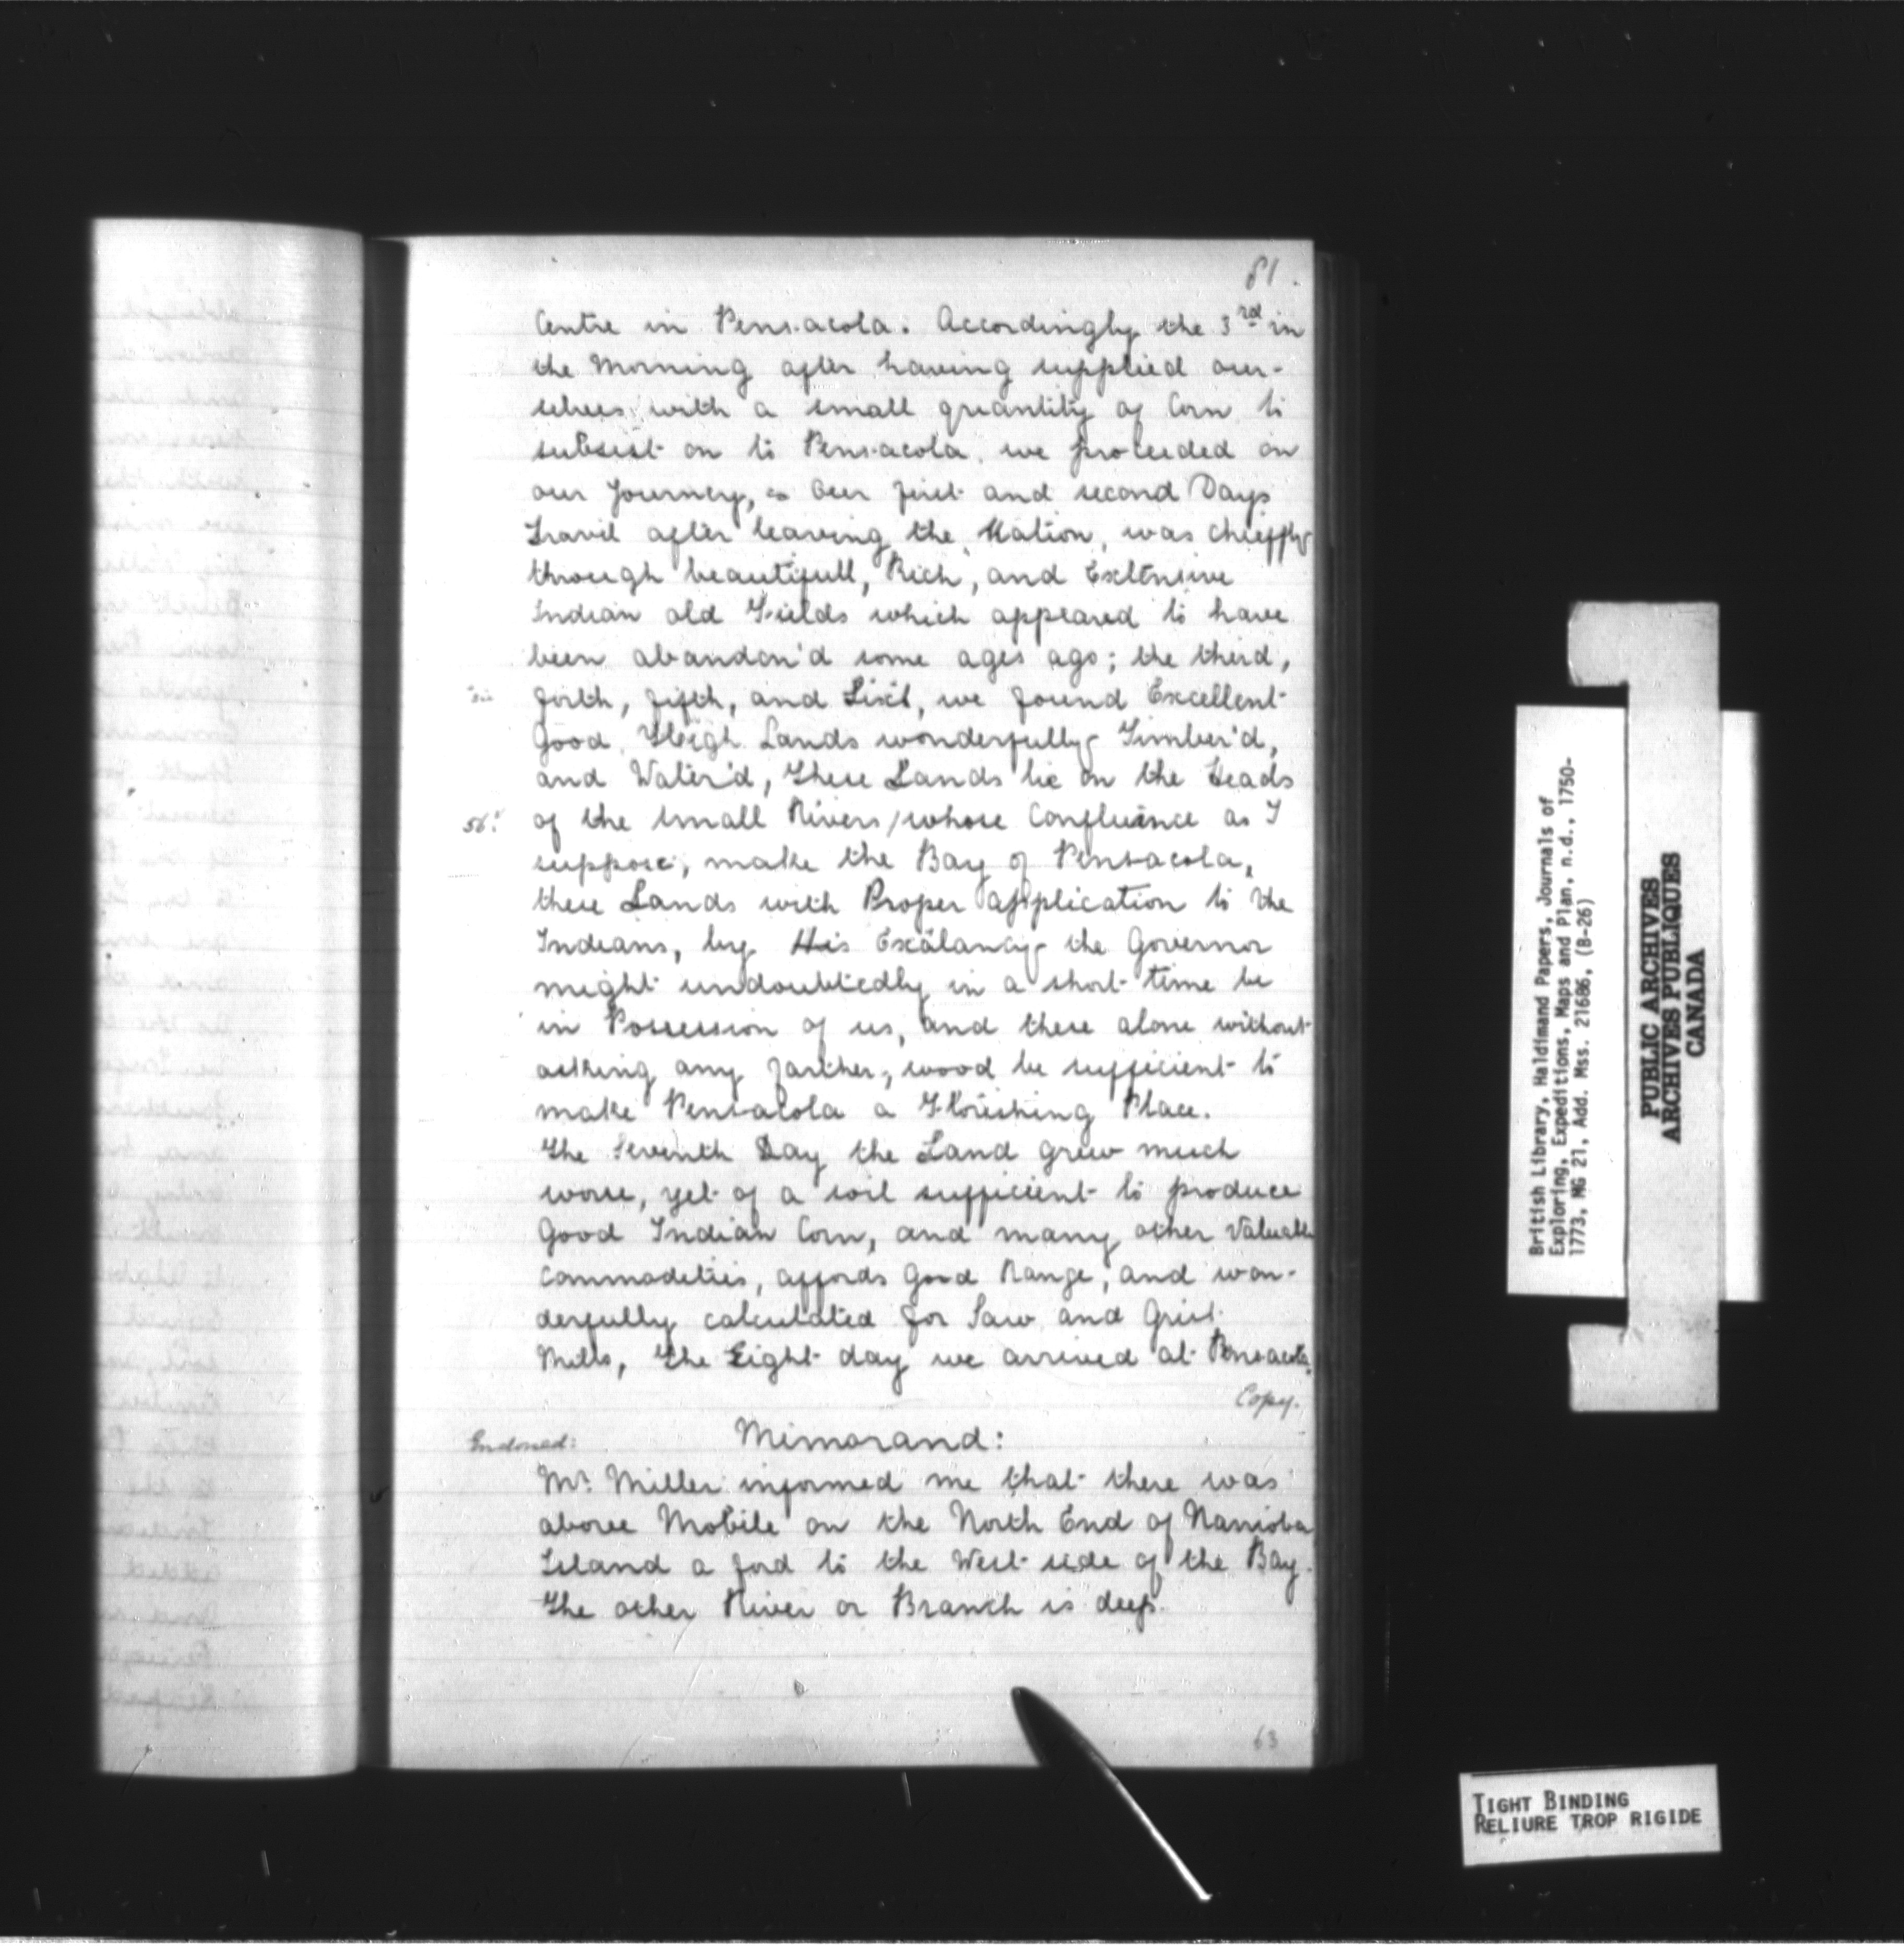 61.
Centre in Pensacola. Accordingly the 3rd in
the Morning after having supplied our-
selves with a small quantity of Corn to
subsist on to Pensacola, we proceeded on
our Journey, Our first and second Days
Travil after leaving the Nation, was chieffly
through beautifull, Rich, and Exltensive
Indian old Fields which appeared to have
been abandon'd some ages ago; the third,
sic
forth, fifth, and Sixt, we found Excellent
Good High Lands wonderfully Timber'd,
and Water'd, These Lands lie on the Heads
56!
of the small Rivers, whose Confluence as I
suppose, make the Bay of Pensacola,
these Lands with Proper application to the
Indians, by His Exalancy the Governor
might undoubtedly in a short time be
in Possession of us, and these alone without
asking any farther, wood be sufficient to
make Pensacola a Florishing Place.
The Seventh Day the Land grew much
worse, yet of a soil sufficient to produce
Good Indian Corn, and many other Valuable
Commodities, affords good Range, and won-
derfully calculated for Saw and Grist
Mills, The Eight day we arrived at Pensacola.
Copy.
Endorsed:
Mimorand:
Mr. Miller informed me that there was
above Mobile on the North End of Nanioba
Island a ford to the West side of the Bay.
The other River or Branch is deep.
63
British Library, Haldimand Papers, Journals of
Exploring, Expeditions, Maps and Plan, n.d., 1750-
1773, MG 21, Add. Mss. 21686, (B-26)
PUBLIC ARCHIVES
ARCHIVES PUBLIQUES
CANADA
TIGHT BINDING
RELIURE TROP RIGIDE